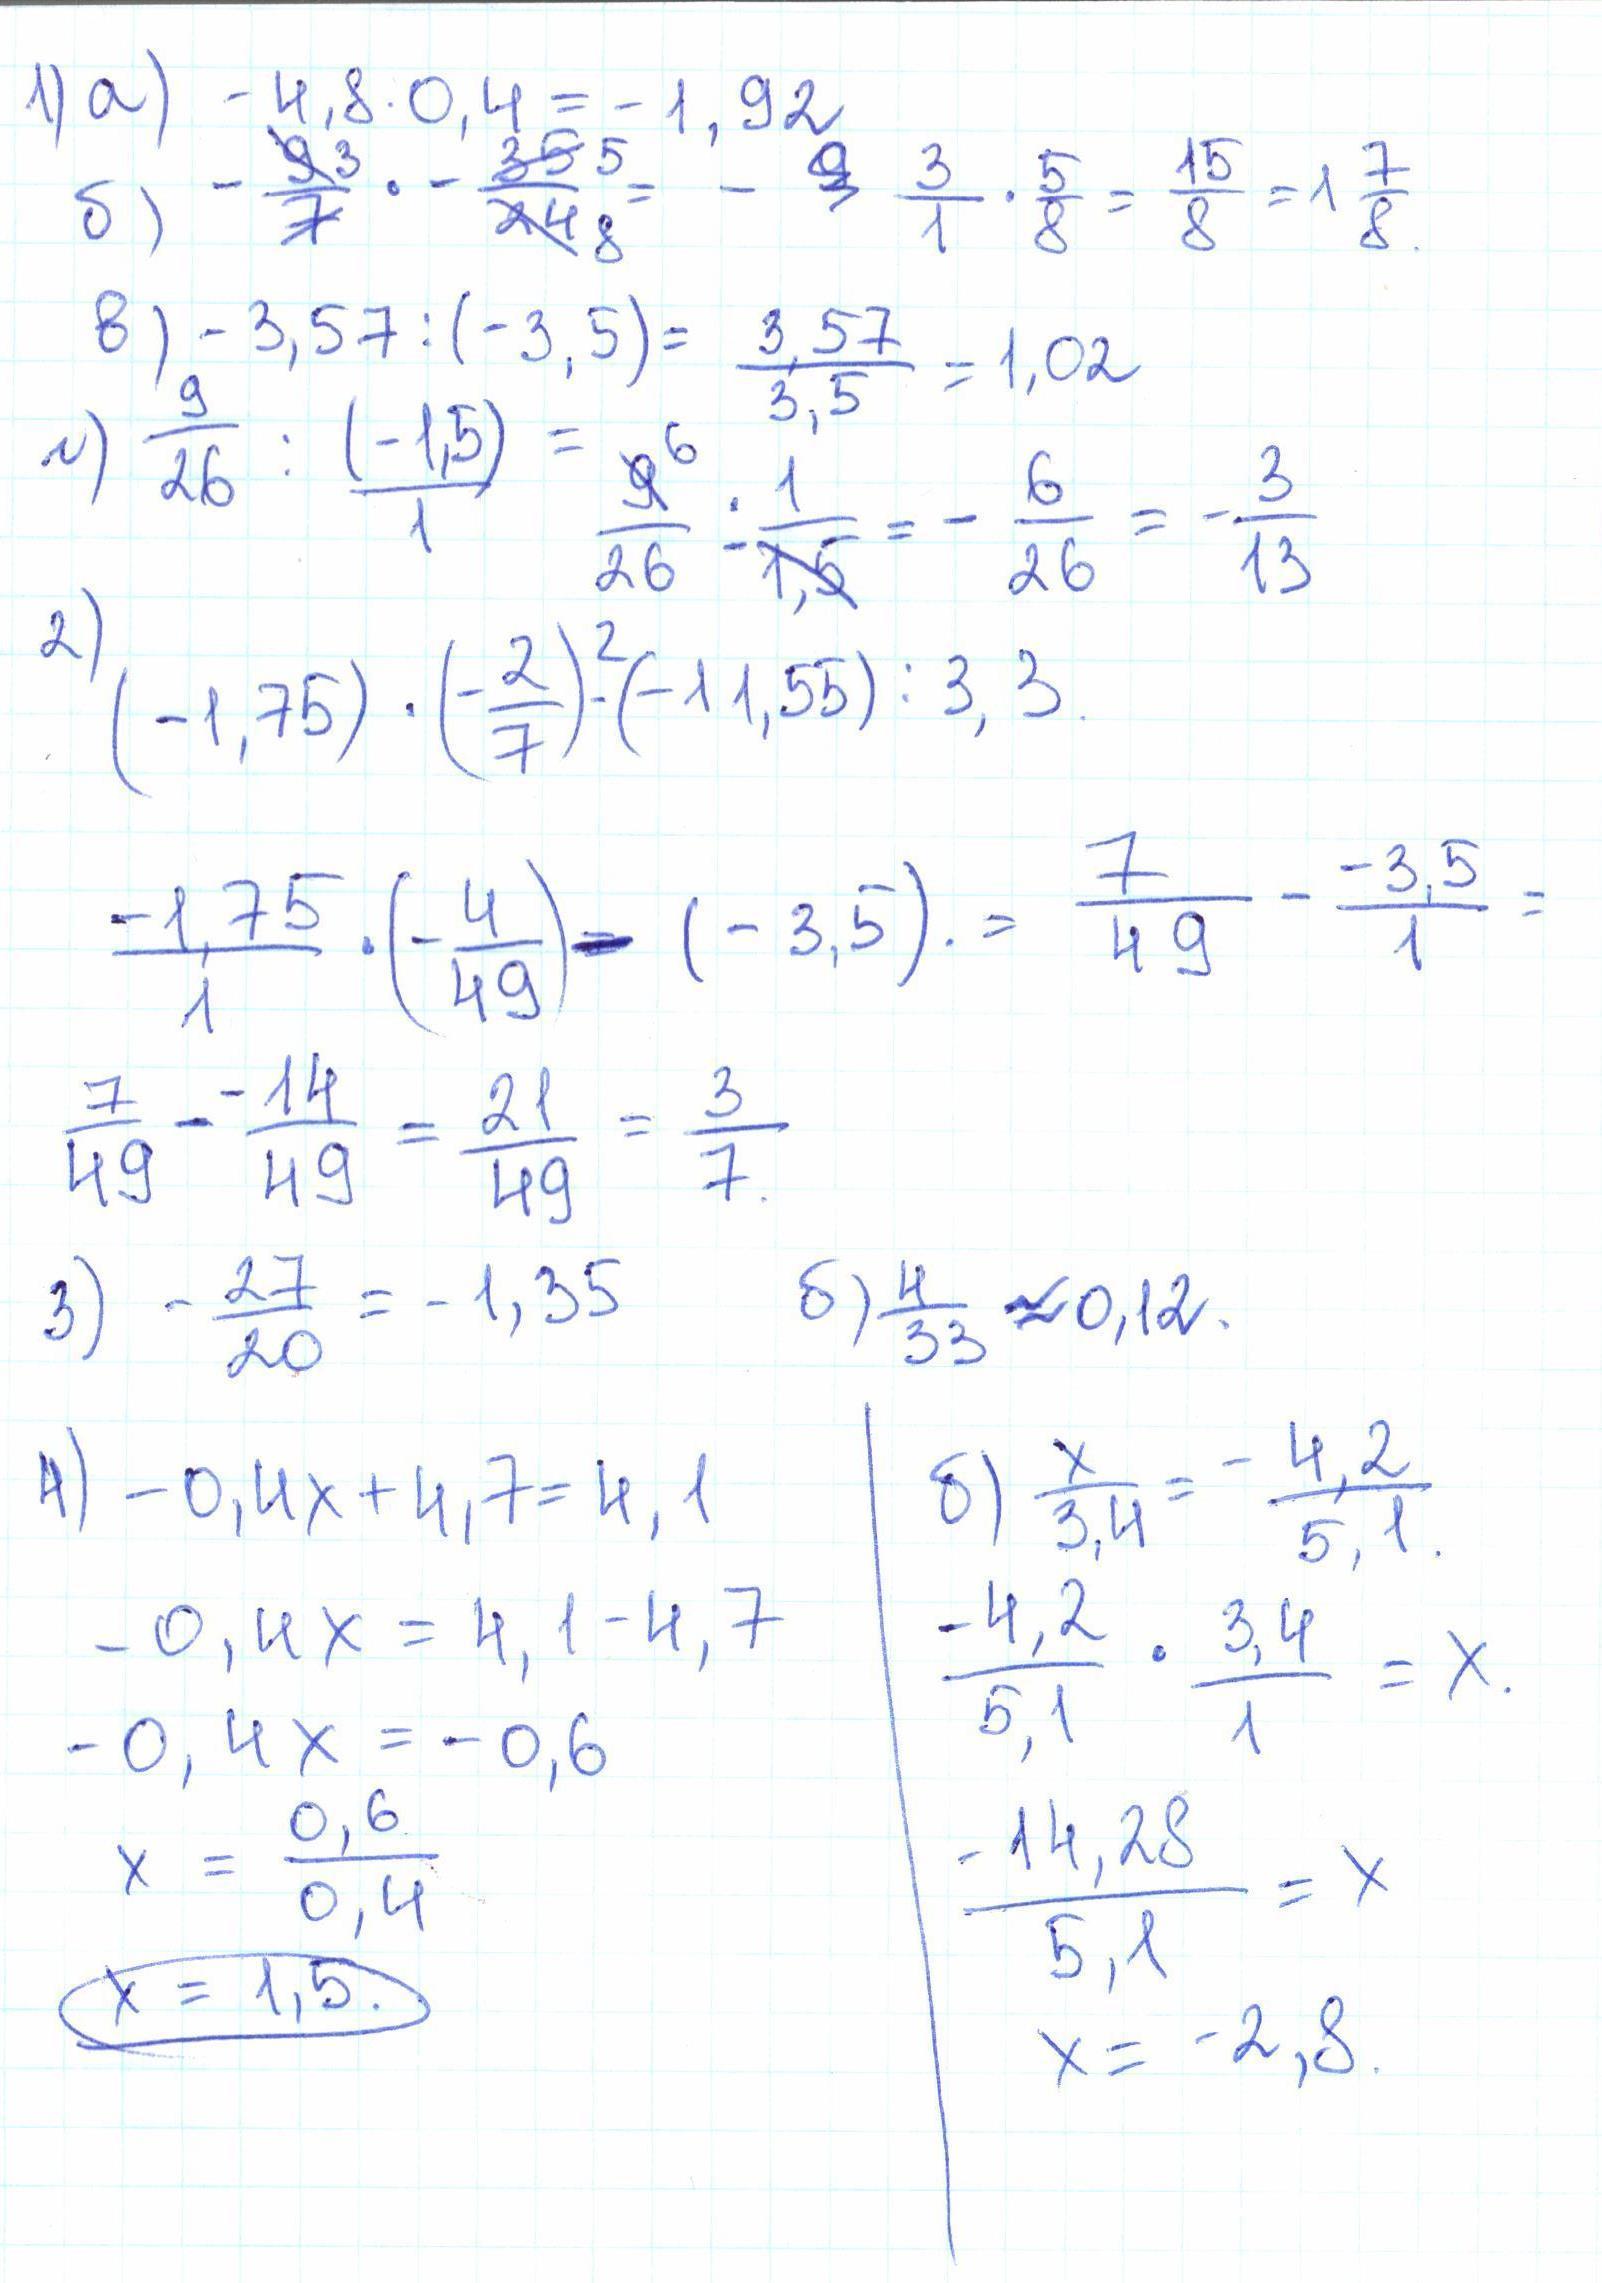 1) а) -4,8·0,4=-1,92
б) -\frac{9}{7}·-\frac{35}{24}=-\frac{3}{1}·\frac{5}{8}=\frac{15}{8}=1\frac{7}{8}.
в) -3,57:(-3,5)=\frac{3,57}{3,5}=1,02
г) \frac{9}{26}:\frac{(-1,5)}{1}=\frac{9}{26}·-\frac{1}{1,5}=-\frac{6}{26}=-\frac{3}{13}
2) (-1,75)·(-\frac{2}{7})^2-(-11,55):3,3.
\frac{-1,75}{1}·(-\frac{4}{49})-(-3,5).=\frac{7}{49}-\frac{-3,5}{1}=
\frac{7}{49}-\frac{-14}{49}=\frac{21}{49}=\frac{3}{7}.
3) -\frac{27}{20}=-1,35 б) \frac{4}{33}≈0,12.
4) -0,4x+4,7=4,1
-0,4x=4,1-4,7
-0,4x=-0,6
x=\frac{0,6}{0,4}
x=1,5.
б) \frac{x}{3,4}=-\frac{4,2}{5,1}.
\frac{-4,2}{5,1}·\frac{3,4}{1}=x.
\frac{-14,28}{5,1}=x
x=-2,8.